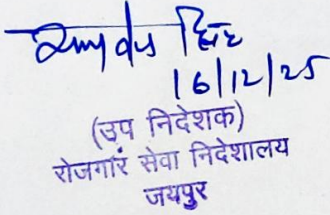 सिंह
16/12/25
(उप निदेशक)
रोजगार सेवा निदेशालय
जयपुर